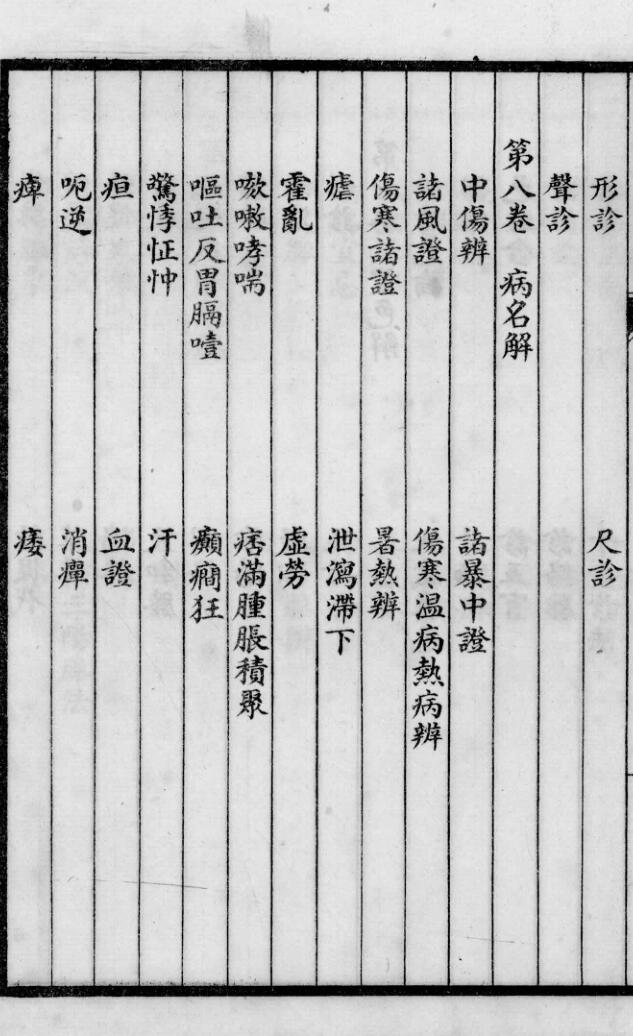 形診　尺診
聲診
第八卷　病名解
中傷辨　諸暴中證
諸風證　傷寒溫病熱病辨
傷寒諸證　暑熱辨
瘧　泄瀉滯下
霍亂　虛勞
咳嗽哮喘　痞滿腫脹積聚
嘔吐反胃膈噎　癲癇狂
驚悸怔忡　汗
疸　血證
呃逆　消癉
痺　痿